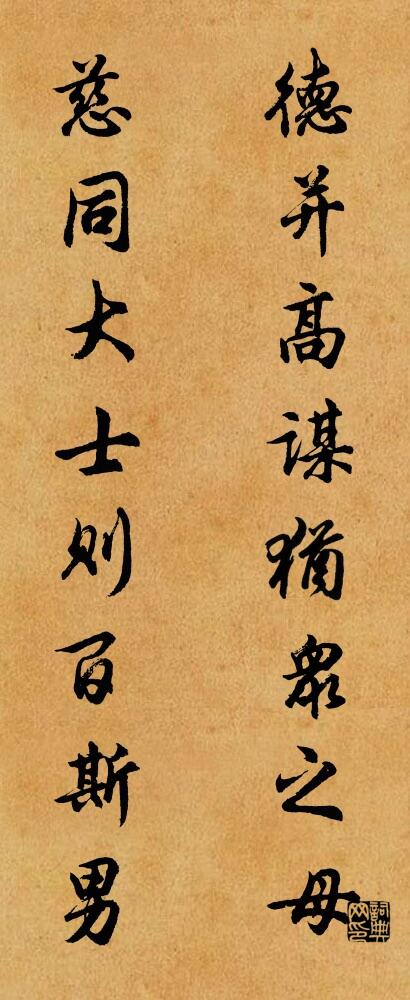 德并高谋犹众之母
慈同大士则百斯男
詞典网印